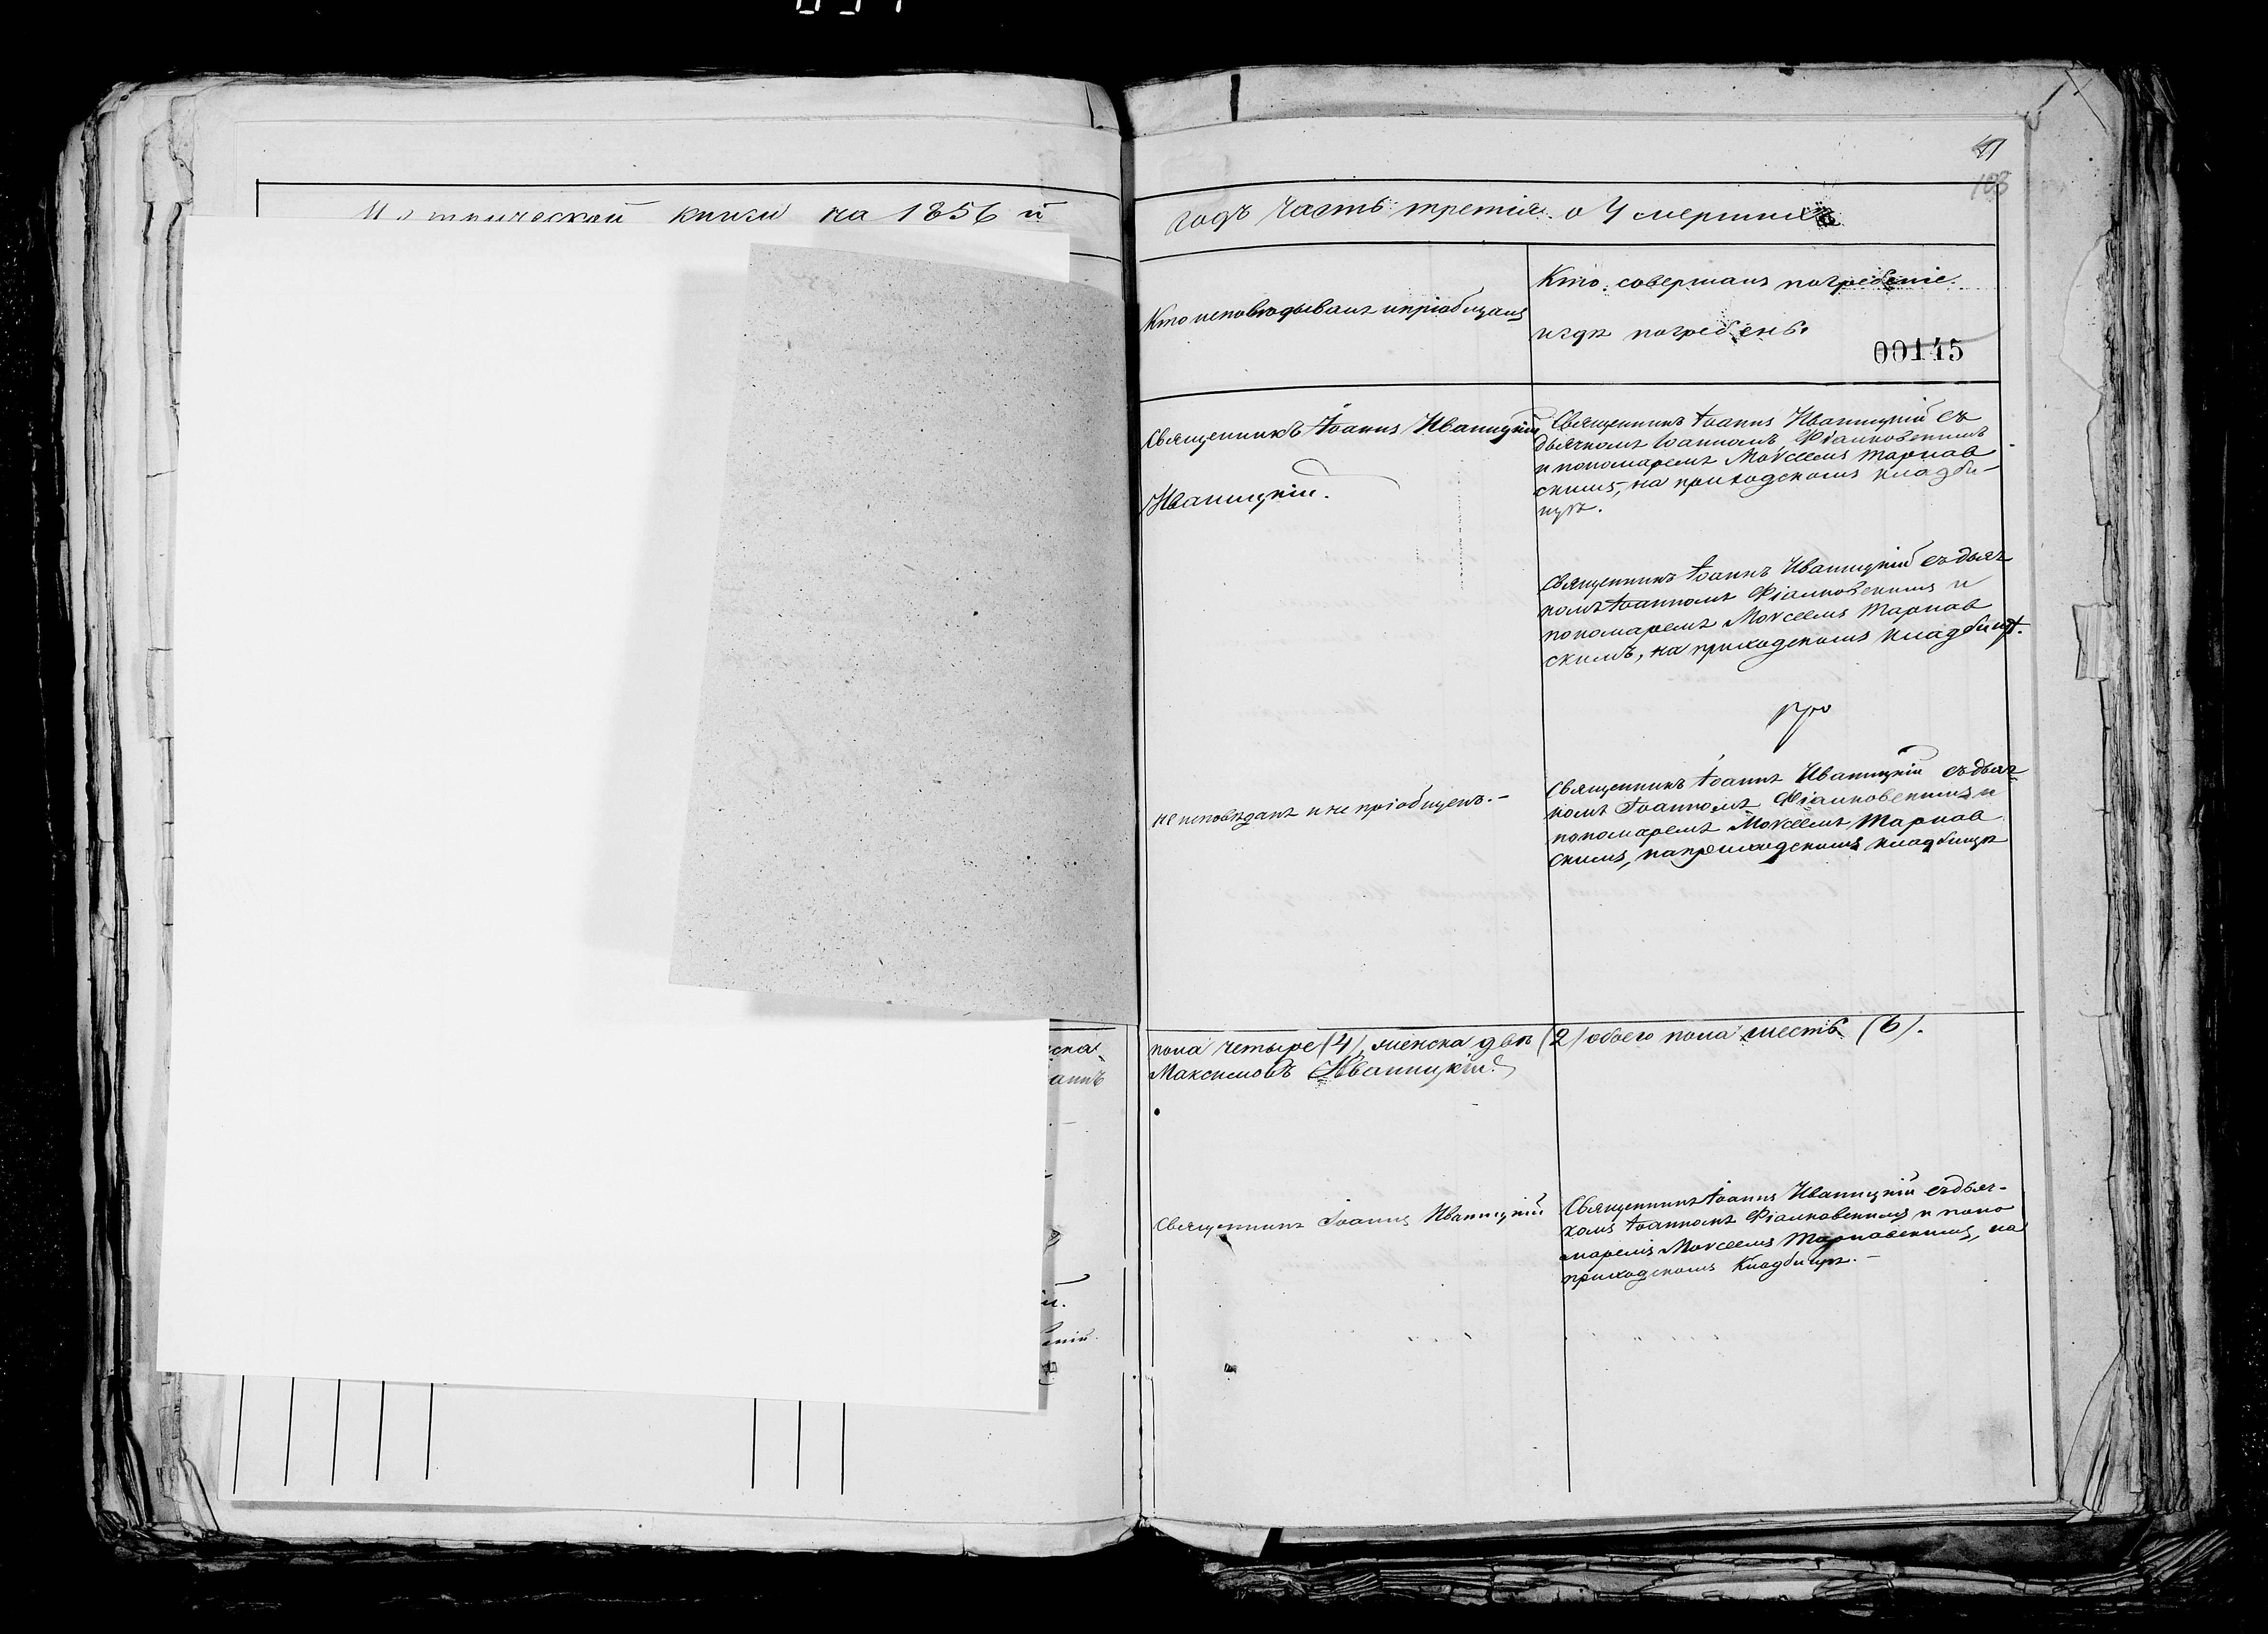 Метрической книги на 1856 й
годъ часть третія о Умершихъ
47
103
Кто исповѣдывалъ и пріобщалъ
Кто совершалъ погребеніе
и гдѣ погребены
00145
Священникъ Іоаннъ Иваницкій
Иваницкій.
Священникъ Іоаннъ Иваницкій съ
дьячкомъ Іоанномъ Фіалковскимъ
и пономаремъ Моѵсеемъ Тарнав
скимъ, на приходскомъ кладби-
щѣ.
Священникъ Іоаннъ Иваницкій съ дьяч
комъ Іоанномъ Фіалковскимъ и
пономаремъ Моѵсеемъ Тарнав
скимъ, на приходскомъ кладбищѣ.
не исповѣданъ и не пріобщенъ.-
Священникъ Іоаннъ Иваницкій съ дьяч
комъ Іоанномъ Фіалковскимъ и
пономаремъ Моѵсеемъ Тарнав
скимъ, на приходскомъ кладбищѣ
пола четыре (4), женска двѣ (2) обоего пола шесть (6).
Максимовъ Иваницкій.
Священникъ Іоаннъ Иваницкій
Священникъ Іоаннъ Иваницкій съ дьяч-
комъ Іоанномъ Фіалковскимъ и поно
маремъ Моѵсеемъ Тарнавскимъ, на
приходскомъ кладбищѣ.-